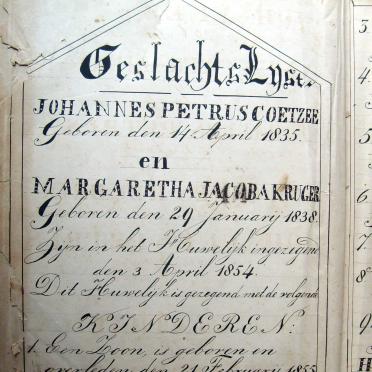 GeslachtsLyst.
JOHANNES PETRUS COETZEE
Geboren den 14 April 1835.
en
MARGARETHA JACOBA KRUGER
Geboren den 29 Januarij 1838.
Zijn in het Huwelijk ingezegend
den 3 April 1854.
Dit Huwelijk is gezegend met de volgende
KINDEREN:
1. Een Zoon, is geboren en
overleden, den 21 Februarij 1855
3
4
5
6
7
8
9